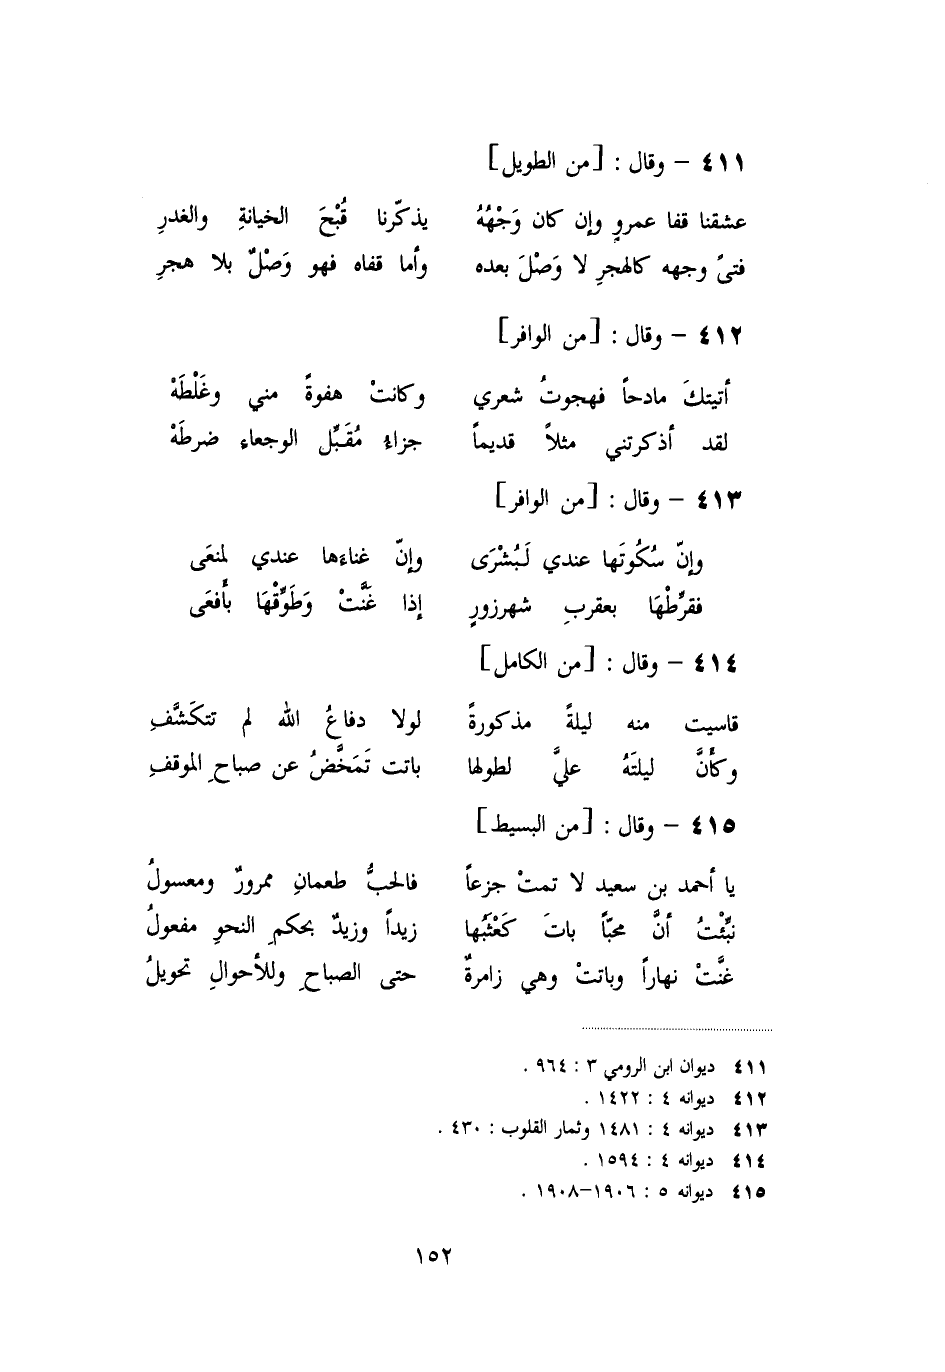 ٤١١ – وقال : [من الطويل]
عشقنا قفا عمروٍ وإن كان وَجْهُهُ يذكّرنا قُبْحَ الخيانةِ والغدرِ
فتىً وجهه كالهجرِ لا وَصْلَ بعده وأما قفاه فهو وَصْلٌ بلا هجرِ
٤١٢ – وقال : [من الوافر]
أتيتكَ مادحاً فهجوتُ شعري وكانتْ هفوةً مني وغَلْطَهْ
لقد أذكرتني مثلاً قديماً جزاءُ مُقَبِّل الوجعاء ضرطَهْ
٤١٣ – وقال : [من الوافر]
وإنّ سُكُوتَها عندي لَبُشْرَى وإنّ غناءها عندي لمنعَى
فقرِّطْهَا بعقربِ شهرزورٍ إذا غَنَّتْ وَطَوِّقْهَا بأَفعَى
٤١٤ – وقال : [من الكامل]
قاسيت منه ليلةً مذكورةً لولا دفاعُ الله لم تتكَشَّفِ
وكأَنَّ ليلتَهُ عليَّ لطولها باتت تَمَخَّضُ عن صباحِ الموقفِ
٤١٥ – وقال : [من البسيط]
يا أحمد بن سعيد لا تمتْ جزعاً فالحبُّ طعمانِ ممرورٌ ومعسولُ
نبِّئْتُ أنَّ محبّاً باتَ كَعْثَبُها زيداً وزيدٌ بحكمِ النحوِ مفعولُ
غنَّتْ نهاراً وباتتْ وهي زامرةٌ حتى الصباحِ وللأحوالِ تحويلُ
٤١١ ديوان ابن الرومي ٣ : ٩٦٤ .
٤١٢ ديوانه ٤ : ١٤٢٢ .
٤١٣ ديوانه ٤ : ١٤٨١ وثمار القلوب : ٤٣٠ .
٤١٤ ديوانه ٤ : ١٥٩٤ .
٤١٥ ديوانه ٥ : ١٩٠٦–١٩٠٨ .
١٥٢